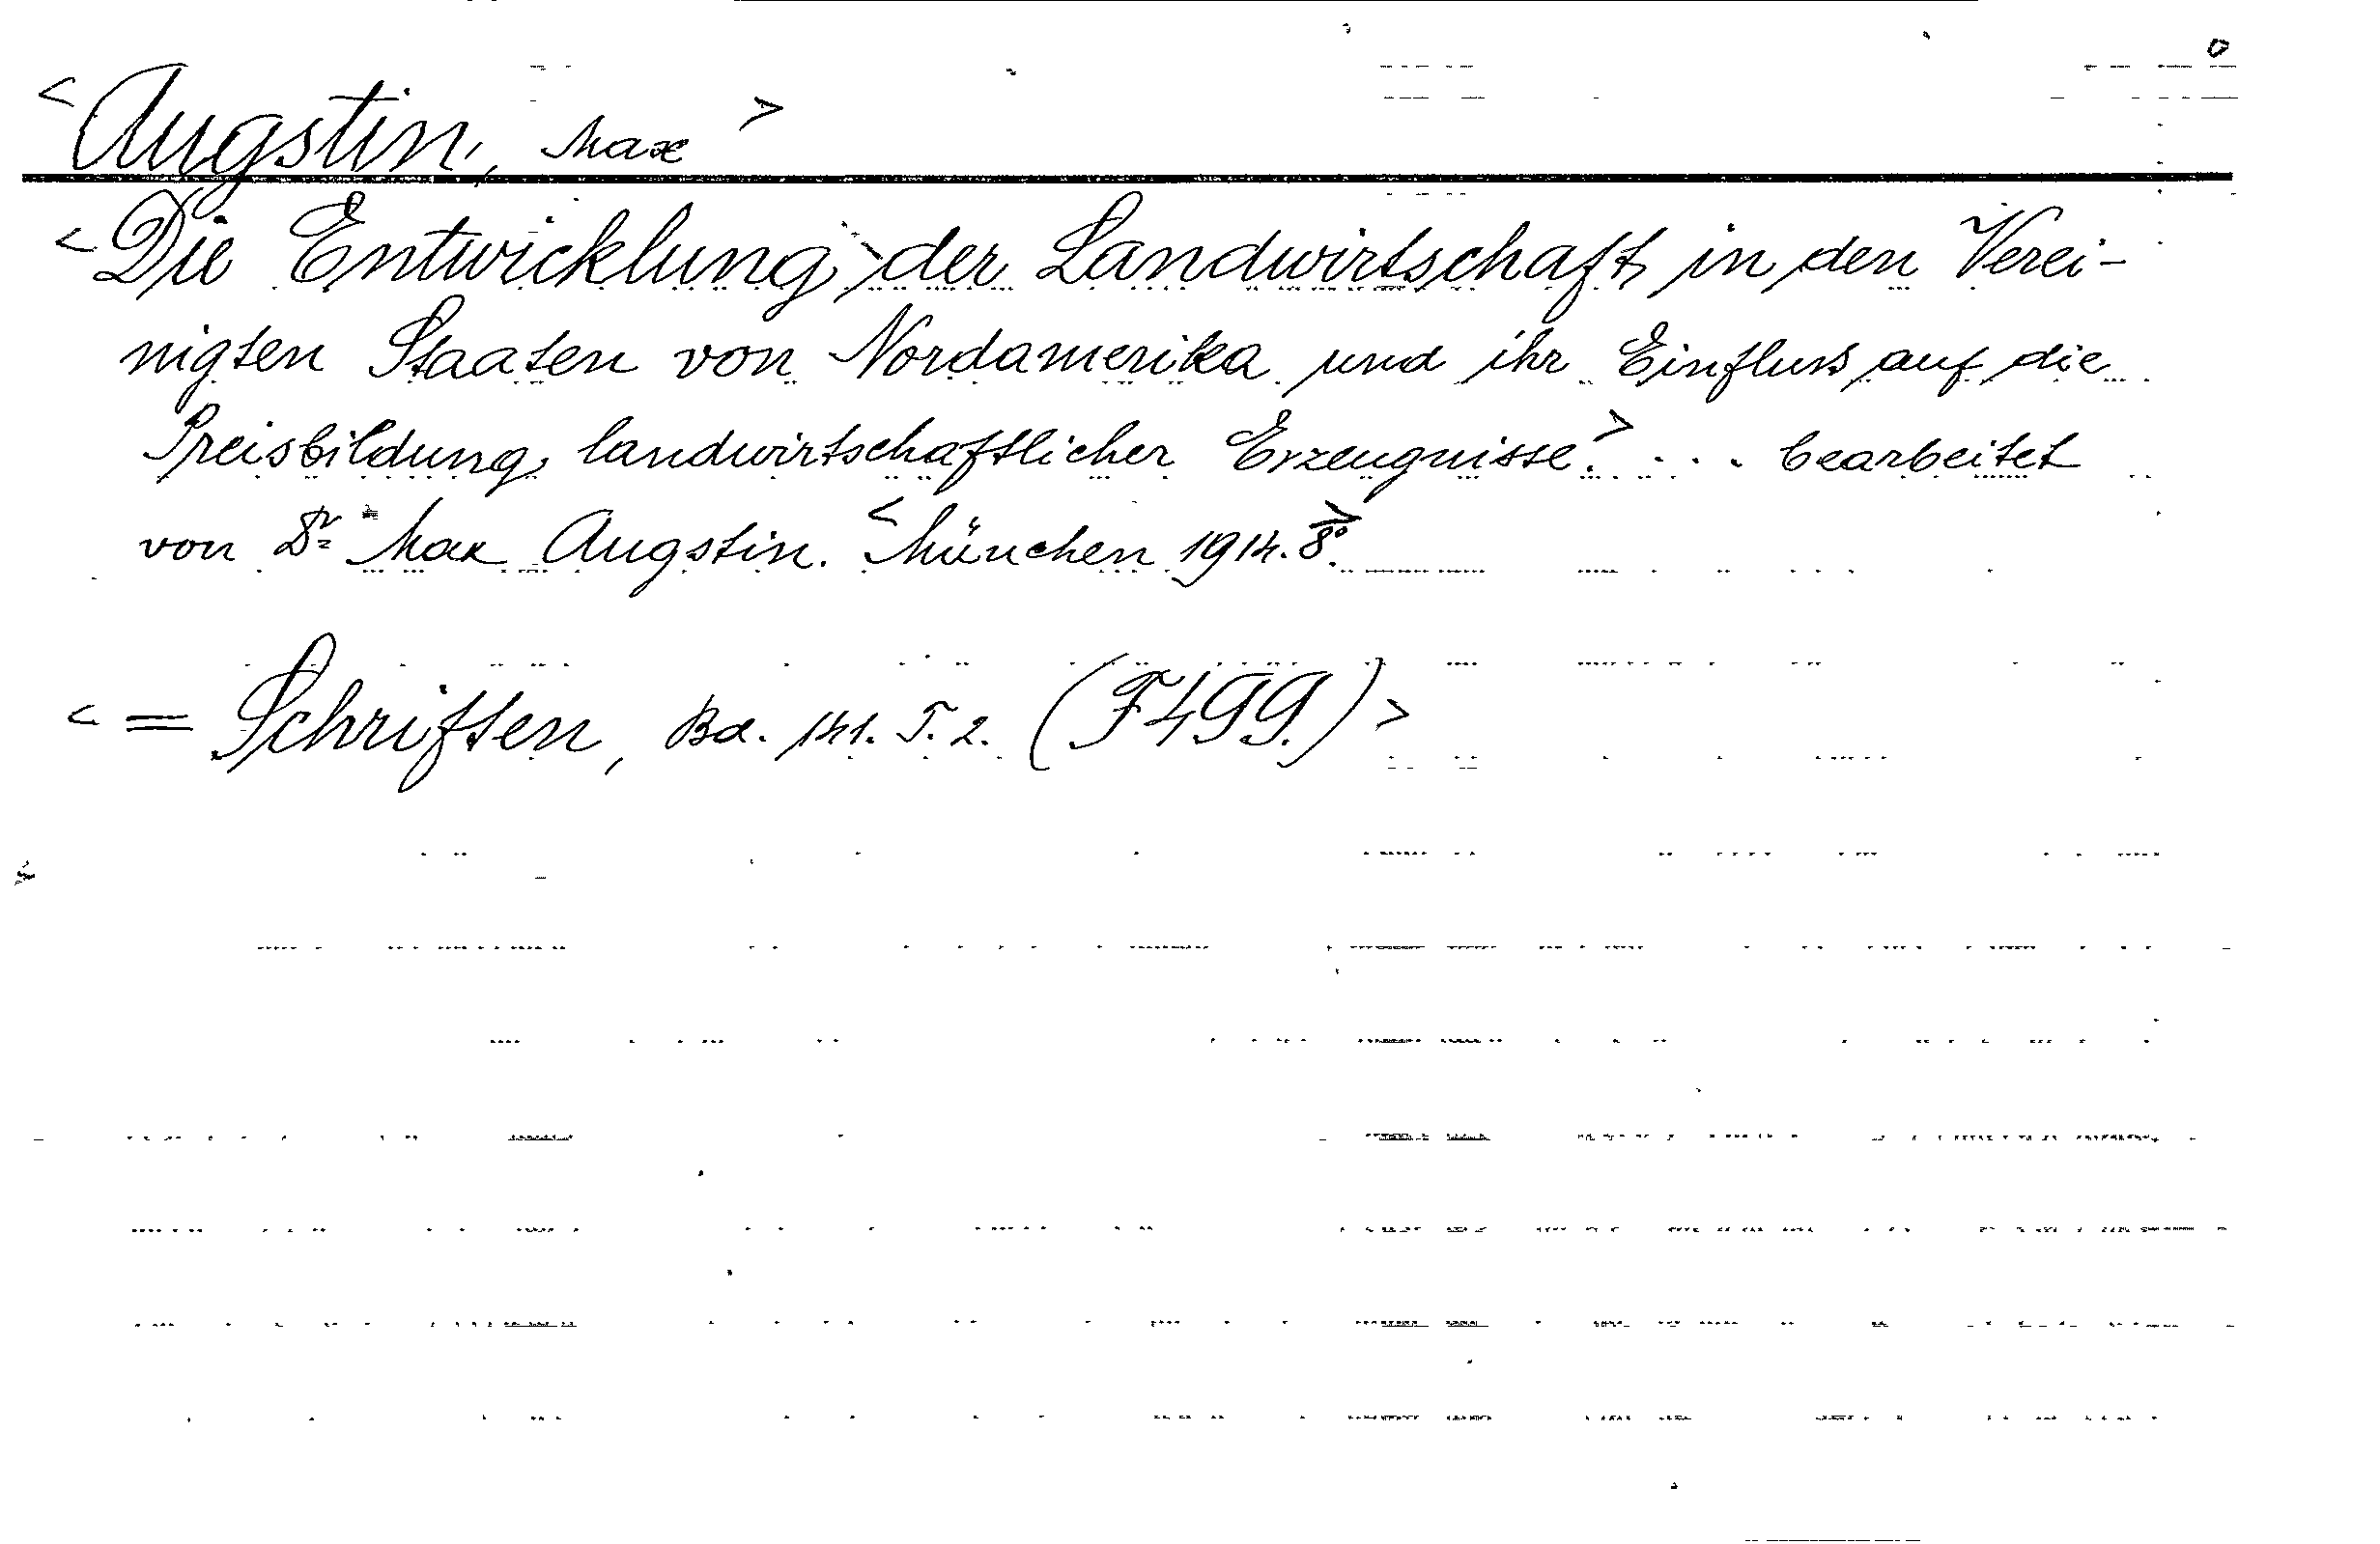 <Augstin, Max>
<Die Entwicklung der Landwirtschaft in den Verei-
nigten Staaten von Nordamerika und ihr Einfluss auf die
Preisbildung landwirtschaftlicher Erzeugnisse.> ... bearbeitet
von Dr Max Augstin. <München 1914. 8°.>
<= Schriften, Bd. 141. T. 2. (F499.)>